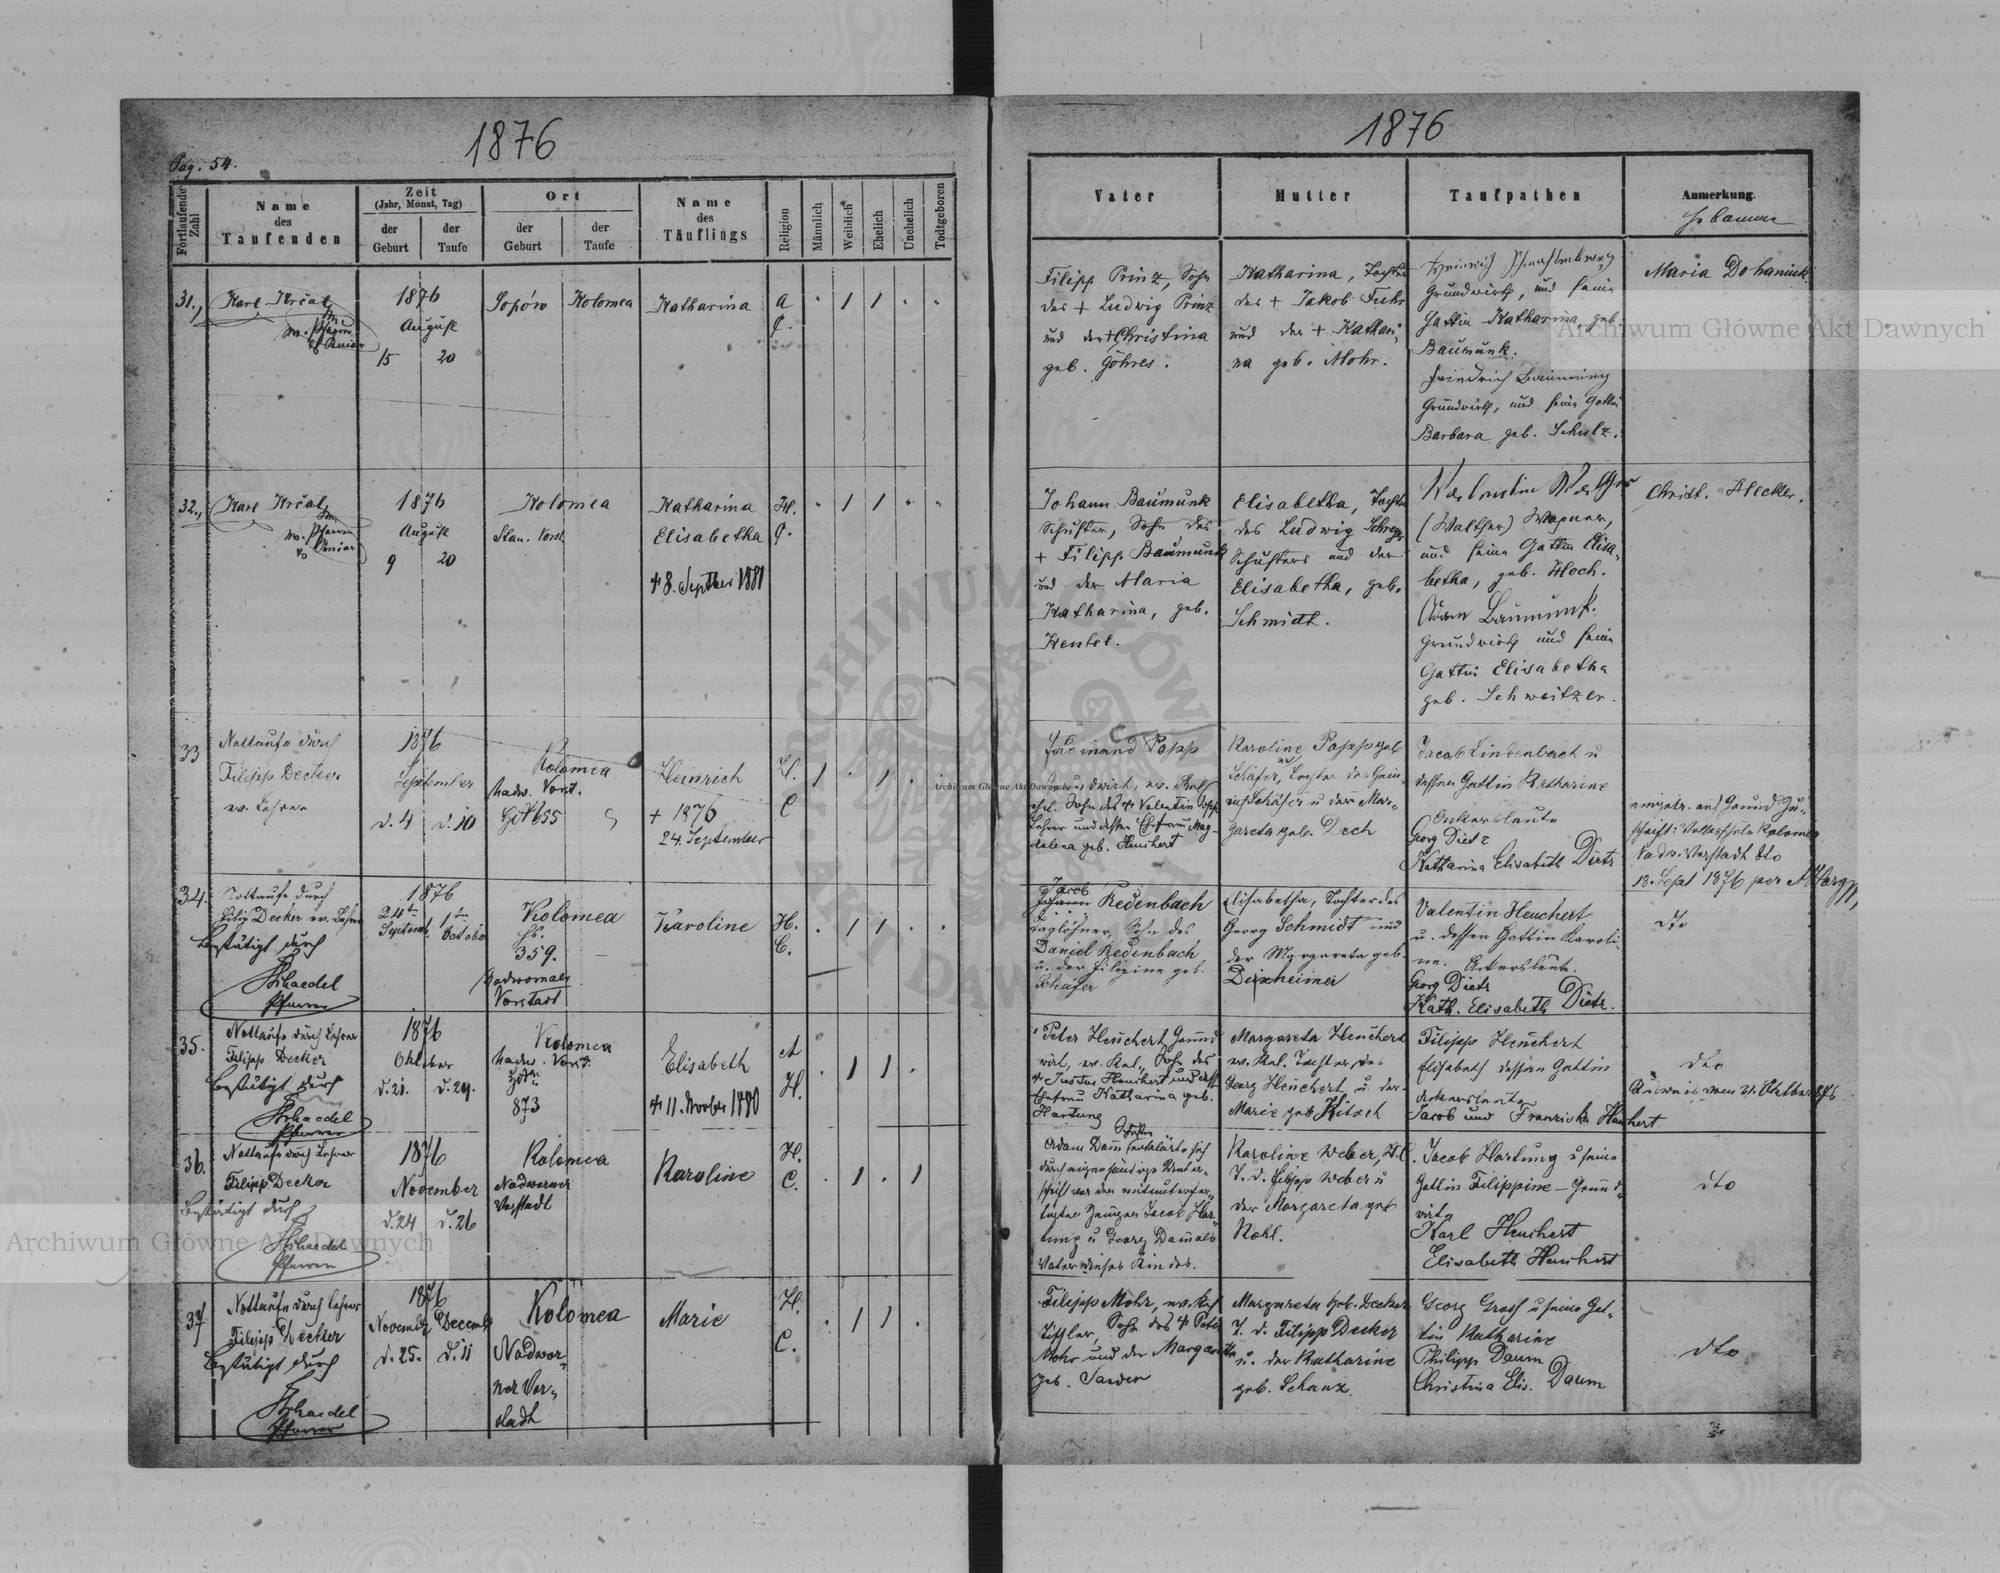 1876
Pag. 54.
Fortlaufende Zahl
Name
des
Taufenden
Zeit
(Jahr, Monat, Tag)
der
Geburt
der
Taufe
Ort
der
Geburt
der
Taufe
Name
des
Täuflings
Religion
Männlich
Weiblich
Ehelich
Unehelich
Todtgeboren
31.,
Karl Krčal
1876
August
15 20
Sopów Kolomea
Katharina
32.,
Karl Krčal
1876
August
9 20
Kolomea
Stan. Vorst.
Katharina
Elisabetha
H.
C.
33
Nottaufe durch
Filipp Decker
ev. Lehrer
1876
September
d. 4 d. 10
Kolomea
Nadw. Vorst.
Heinrich
+ 1876
24. September
H.
C
34.
Nottaufe durch
Filip Decker ev. Lehrer
bestätigt durch
Pfarrer
1876
24ten 1ten
Septemb. October
Kolomea
359.
Nadwornaer
Vorstadt
Karoline
H.
C.
35.
Nottaufe durch Lehrer
Filipp Decker
bestätigt durch
Pfarrer
1876
Oktober
d. 21. d. 29.
Kolomea
Nadw. Vorst.
873
Elisabeth
H.
36.
Nottaufe durch Lehrer
Filipp Decker
bestätigt durch
Pfarrer
1876
November
d. 24 d. 26
Kolomea
Nadwerner
Vorstadt
Karoline
H.
C.
37
Nottaufe durch Lehrer
Filipp Decker
bestätigt durch
Pfarrer
1876
Novemb. Decemb.
d. 25. d. 11
Kolomea
Nadwor-
ner Vor-
stadt
Marie
H.
C.
1876
Vater
Mutter
Taufpathen
Anmerkung.
Hebamme
Filipp Prinz, Sohn
des + Ludwig Prinz
und der + Christina
geb. Göhres.
Katharina, Tochter
des + Jakob Fuhr
und der + Kathari-
na geb. Mohr.
Heinrich
Grundwirth, und seine
Gattin Katharina, geb.
Baumunk.
Friedrich
Grundwirth, und seine Gattin
Barbara geb. Schulz.
Maria Dohaniuk
Johann Baumunk
Schuster, Sohn des
+ Filipp Baumunk
und der Maria
Katharina, geb.
Hentel.
Elisabetha, Tochter
des Ludwig
Schusters und der
Elisabetha, geb.
Schmidt.
(Walther) Wagner,
und seine Gattin Elisa-
betha, geb. Hoch.
Adam Baumunk.
Grundwirth und seine
Gattin Elisabetha
geb. Schweitzer.
Christ. Heckler.
Ferdinand Popp
Grundwirt, ev.
ehel. Sohn des + Valentin Popp
Lehrer und dessen Ehefrau Mag-
dalena geb. Heuchert
Karoline Popp geb.
Schäfer, Tochter des Hein-
rich Schäfer u der Mar-
gareta geb. Dech
Jacob Lindenbach u
dessen Gattin Katharine
Ackersleute
Georg Dietz
Katharina Elisabeth Dietz
eingetr. auf Grund Zu-
schrift: Volksschule Kolomea
Nadw. Vorstadt dto
13. Sept 1876 per
Jacob
Redenbach
Taglöhner, Sohn des
Daniel Redenbach
u. der Filipine geb.
Schäfer
Elisabetha, Tochter des
Georg Schmidt und
der Margareta geb.
Deixheimer
Valentin Heuchert
u. dessen Gattin Karoli-
ne. Ackersleute.
Georg Dietz
Kath. Elisabeth Dietz.
dto
Peter Heuchert Grund-
wirt, ev. Rel., Sohn des
+ Justus Heuchert und dess.
Ehefrau Katharina geb.
Hartung
Margareta Heuchert
ev. Rel. Tochter des
Georg Heuchert u. der
Marie geb.
Filipp Heuchert
Elisabeth dessen Gattin
Ackersleute
Jacob und Franziska Heuchert
dto
Adam Daum erklärte sich
durch eigenhändige Unter-
schrift vor den mitunterfer-
tigten Zeugen Jacob Har-
tung u Georg Daum als
Vater dieses Kindes.
Karoline Weber, H.C.
T. d. Filipp Weber u
der Margareta geb.
Kohl.
Jacob Hartung u seine
Gattin Filippine - Grund-
wirte
Karl Heuchert
Elisabeth Heuchert
dto
Filipp Mohr, ev. Rel.
Tischler, Sohn des + Peter
Mohr und der Margaretha
geb. Sander
Margareta geb. Decker
T. d. Filipp Decker
u. der Katharine
geb. Schanz.
Georg Gross u seine Gat-
tin Katharine
Philipp Daum
Christina Elis. Daum
dto
Archiwum Główne Akt Dawnych
Archiwum Główne Akt Dawnych
Archiwum Główne Akt Dawnych